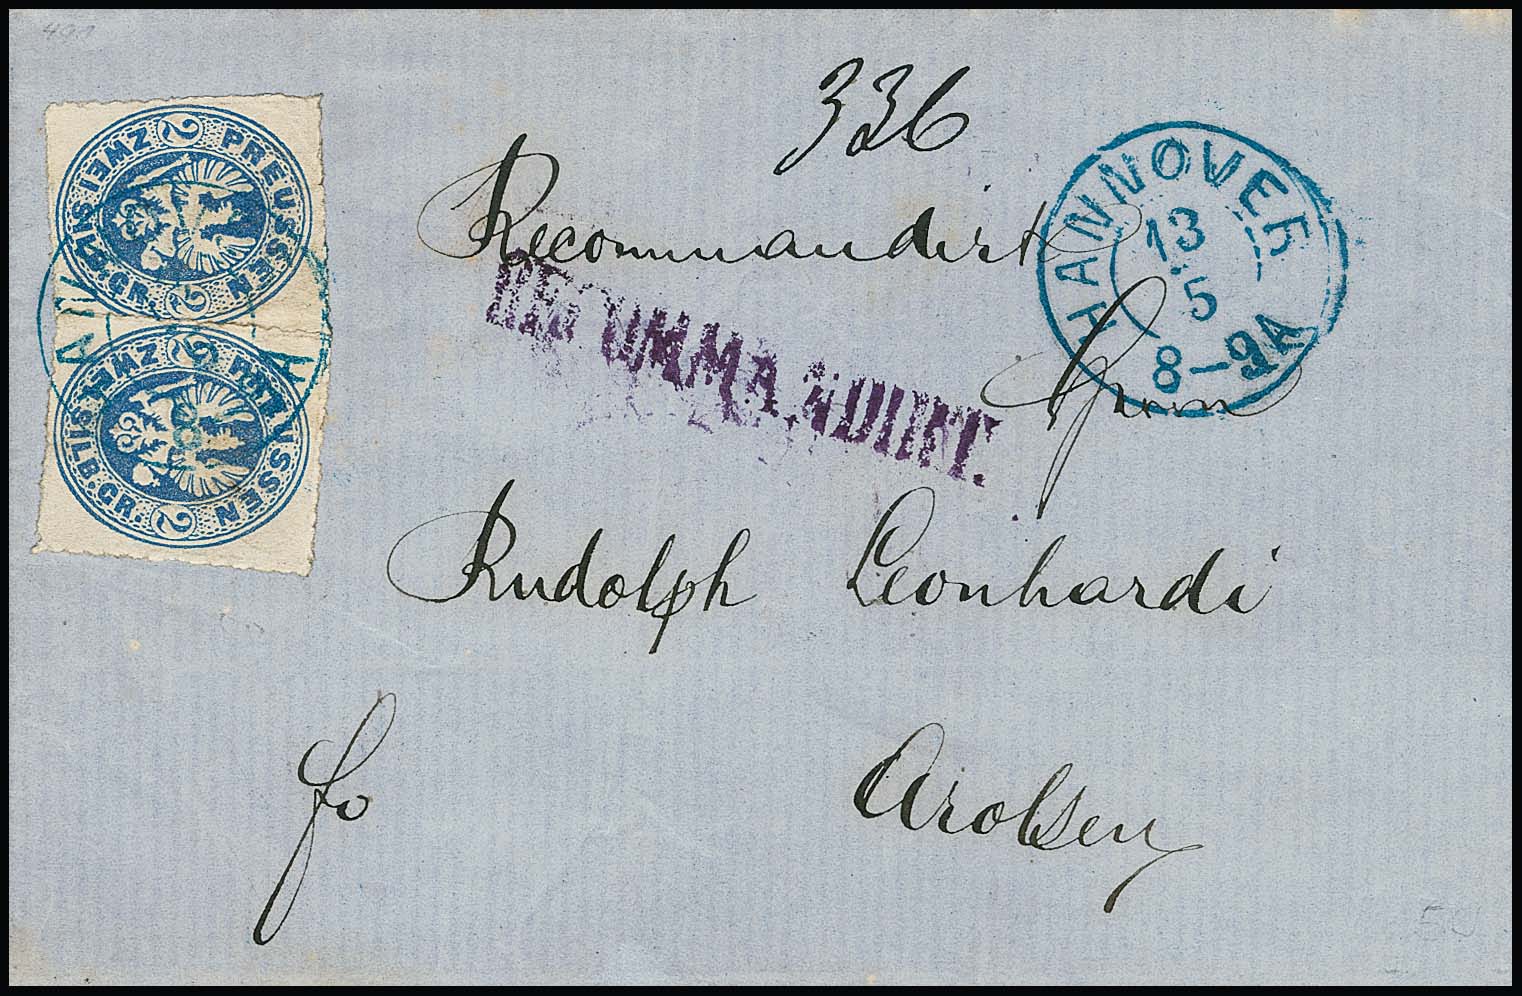 336
Recommandirt
HANNOVER
13
5
8-9A
RECOMMANDIRT.
Herrn
Rudolph Leonhardi
fo
Arolsen
PREUSSEN
ZWEI SILB.GR.
2
2
PREUSSEN
ZWEI SILB.GR.
2
2